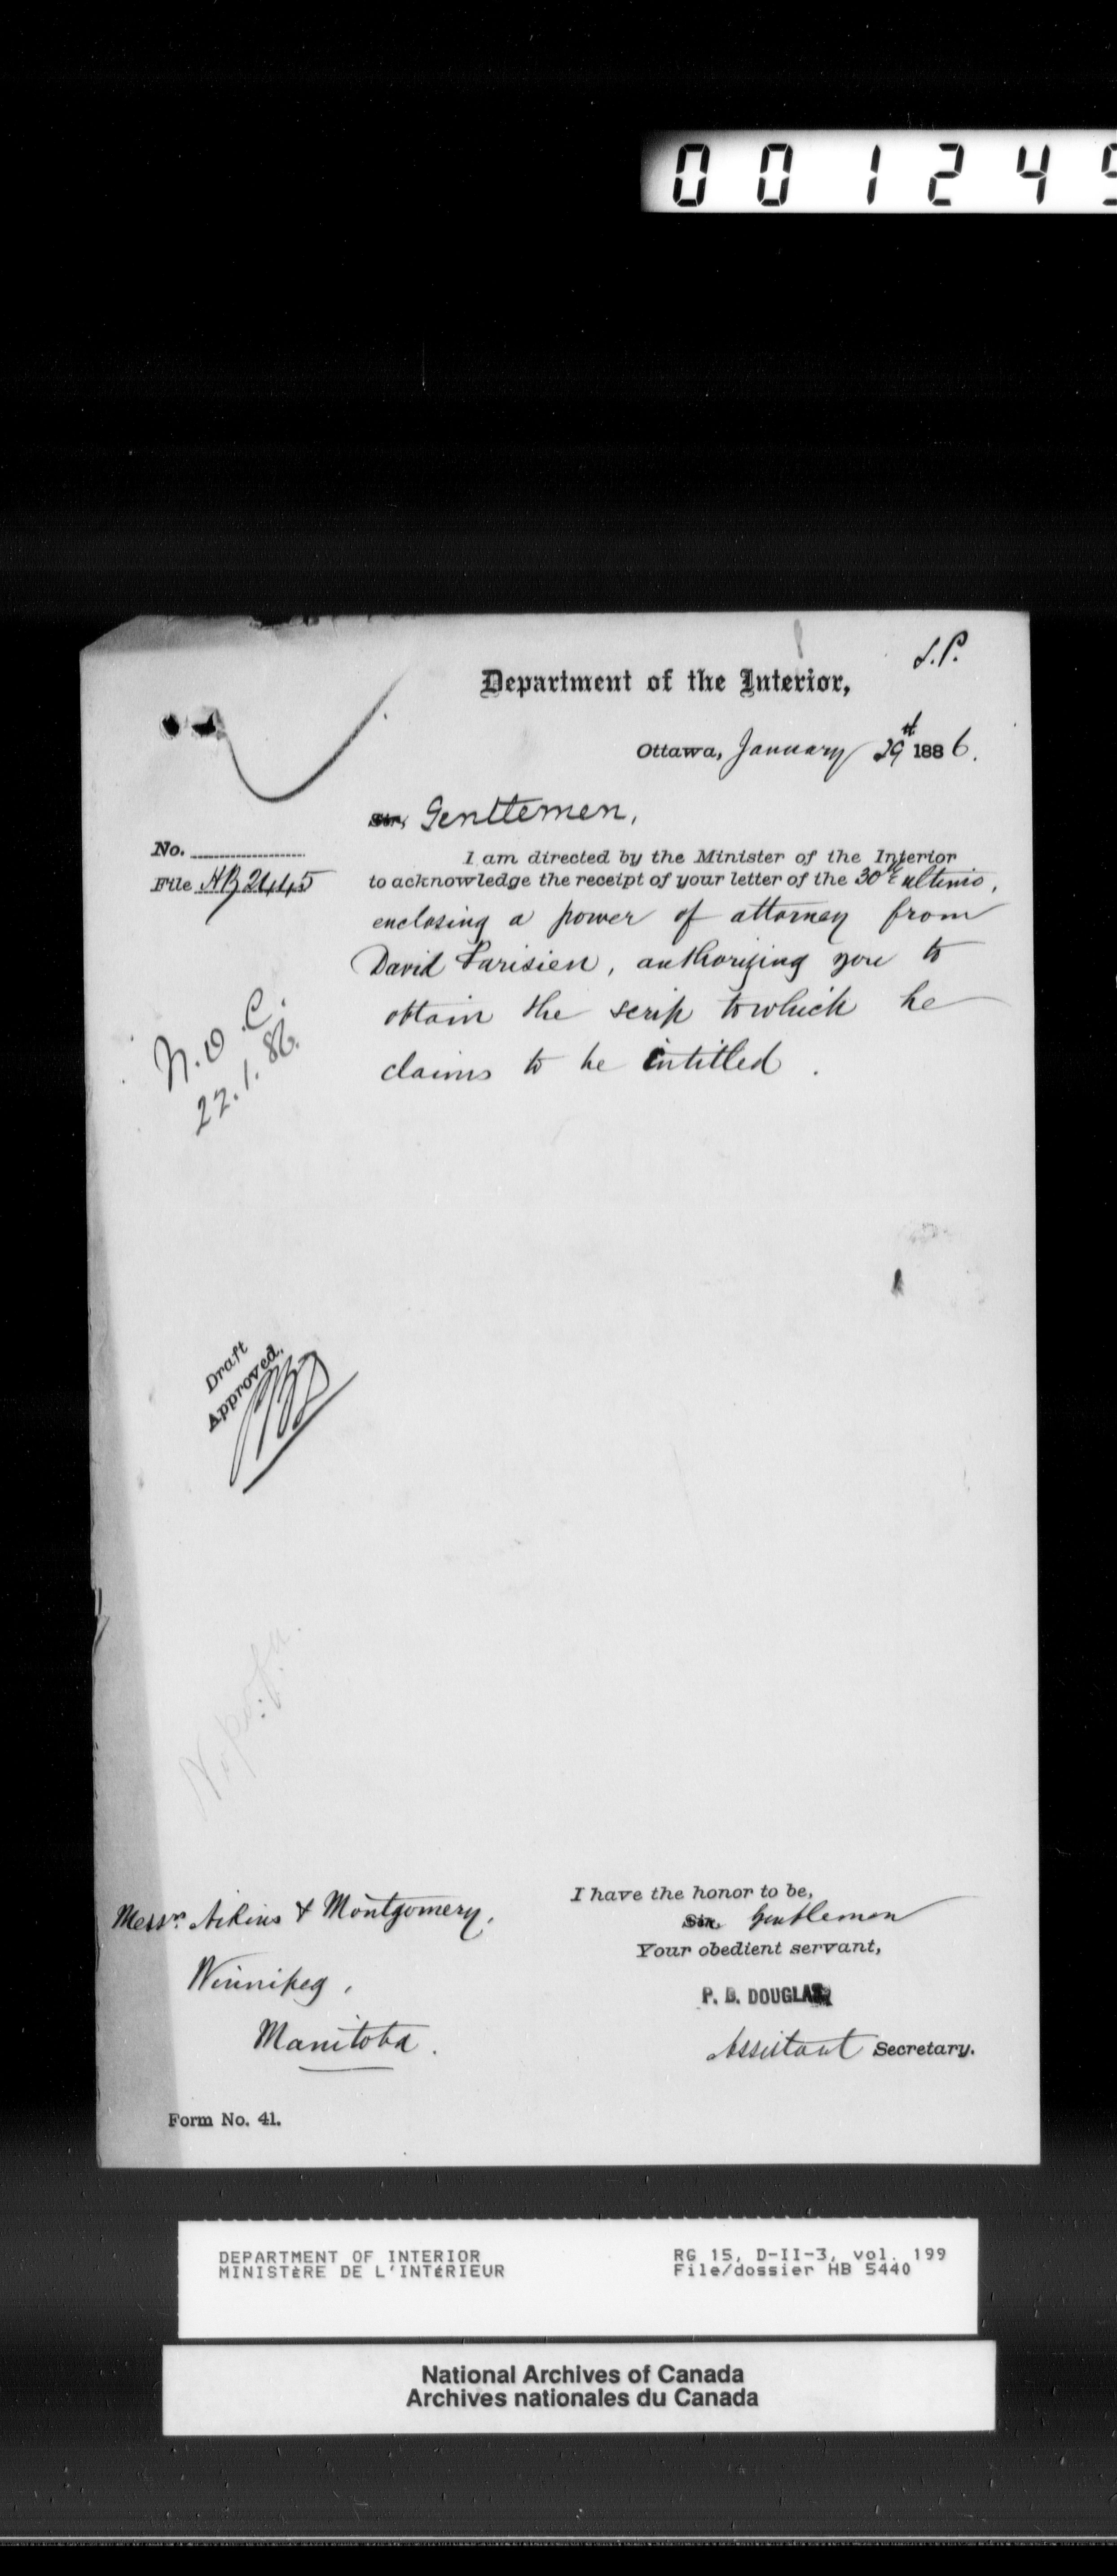 0 0 1 2 4 9
S.P.
Department of the Interior,
Ottawa, January 29th 1886.
Sir, Gentlemen,
No.
File HB 2445
I am directed by the Minister of the Interior
to acknowledge the receipt of your letter of the 30th ultimo,
enclosing a power of attorney from
David Parisien, authorizing you to
obtain the scrip to which he
claims to be intitled.
N.O.C.
22.1.86.
Draft
Approved.
I have the honor to be,
Sir, Gentlemen
Your obedient servant,
P. B. DOUGLAS,
Assistant Secretary.
Messrs. Aikins & Montgomery,
Winnipeg,
Manitoba.
Form No. 41.
DEPARTMENT OF INTERIOR
MINISTÈRE DE L'INTÉRIEUR
RG 15, D-II-3, vol. 199
File/dossier HB 5440
National Archives of Canada
Archives nationales du Canada